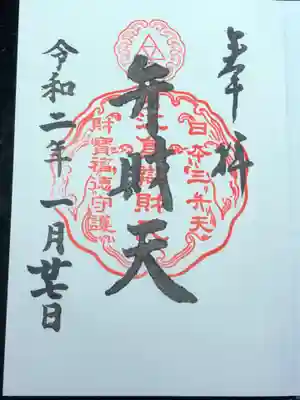 奉拝
日本三弁天
弁財天
財寶福徳守護
令和二年一月廿七日